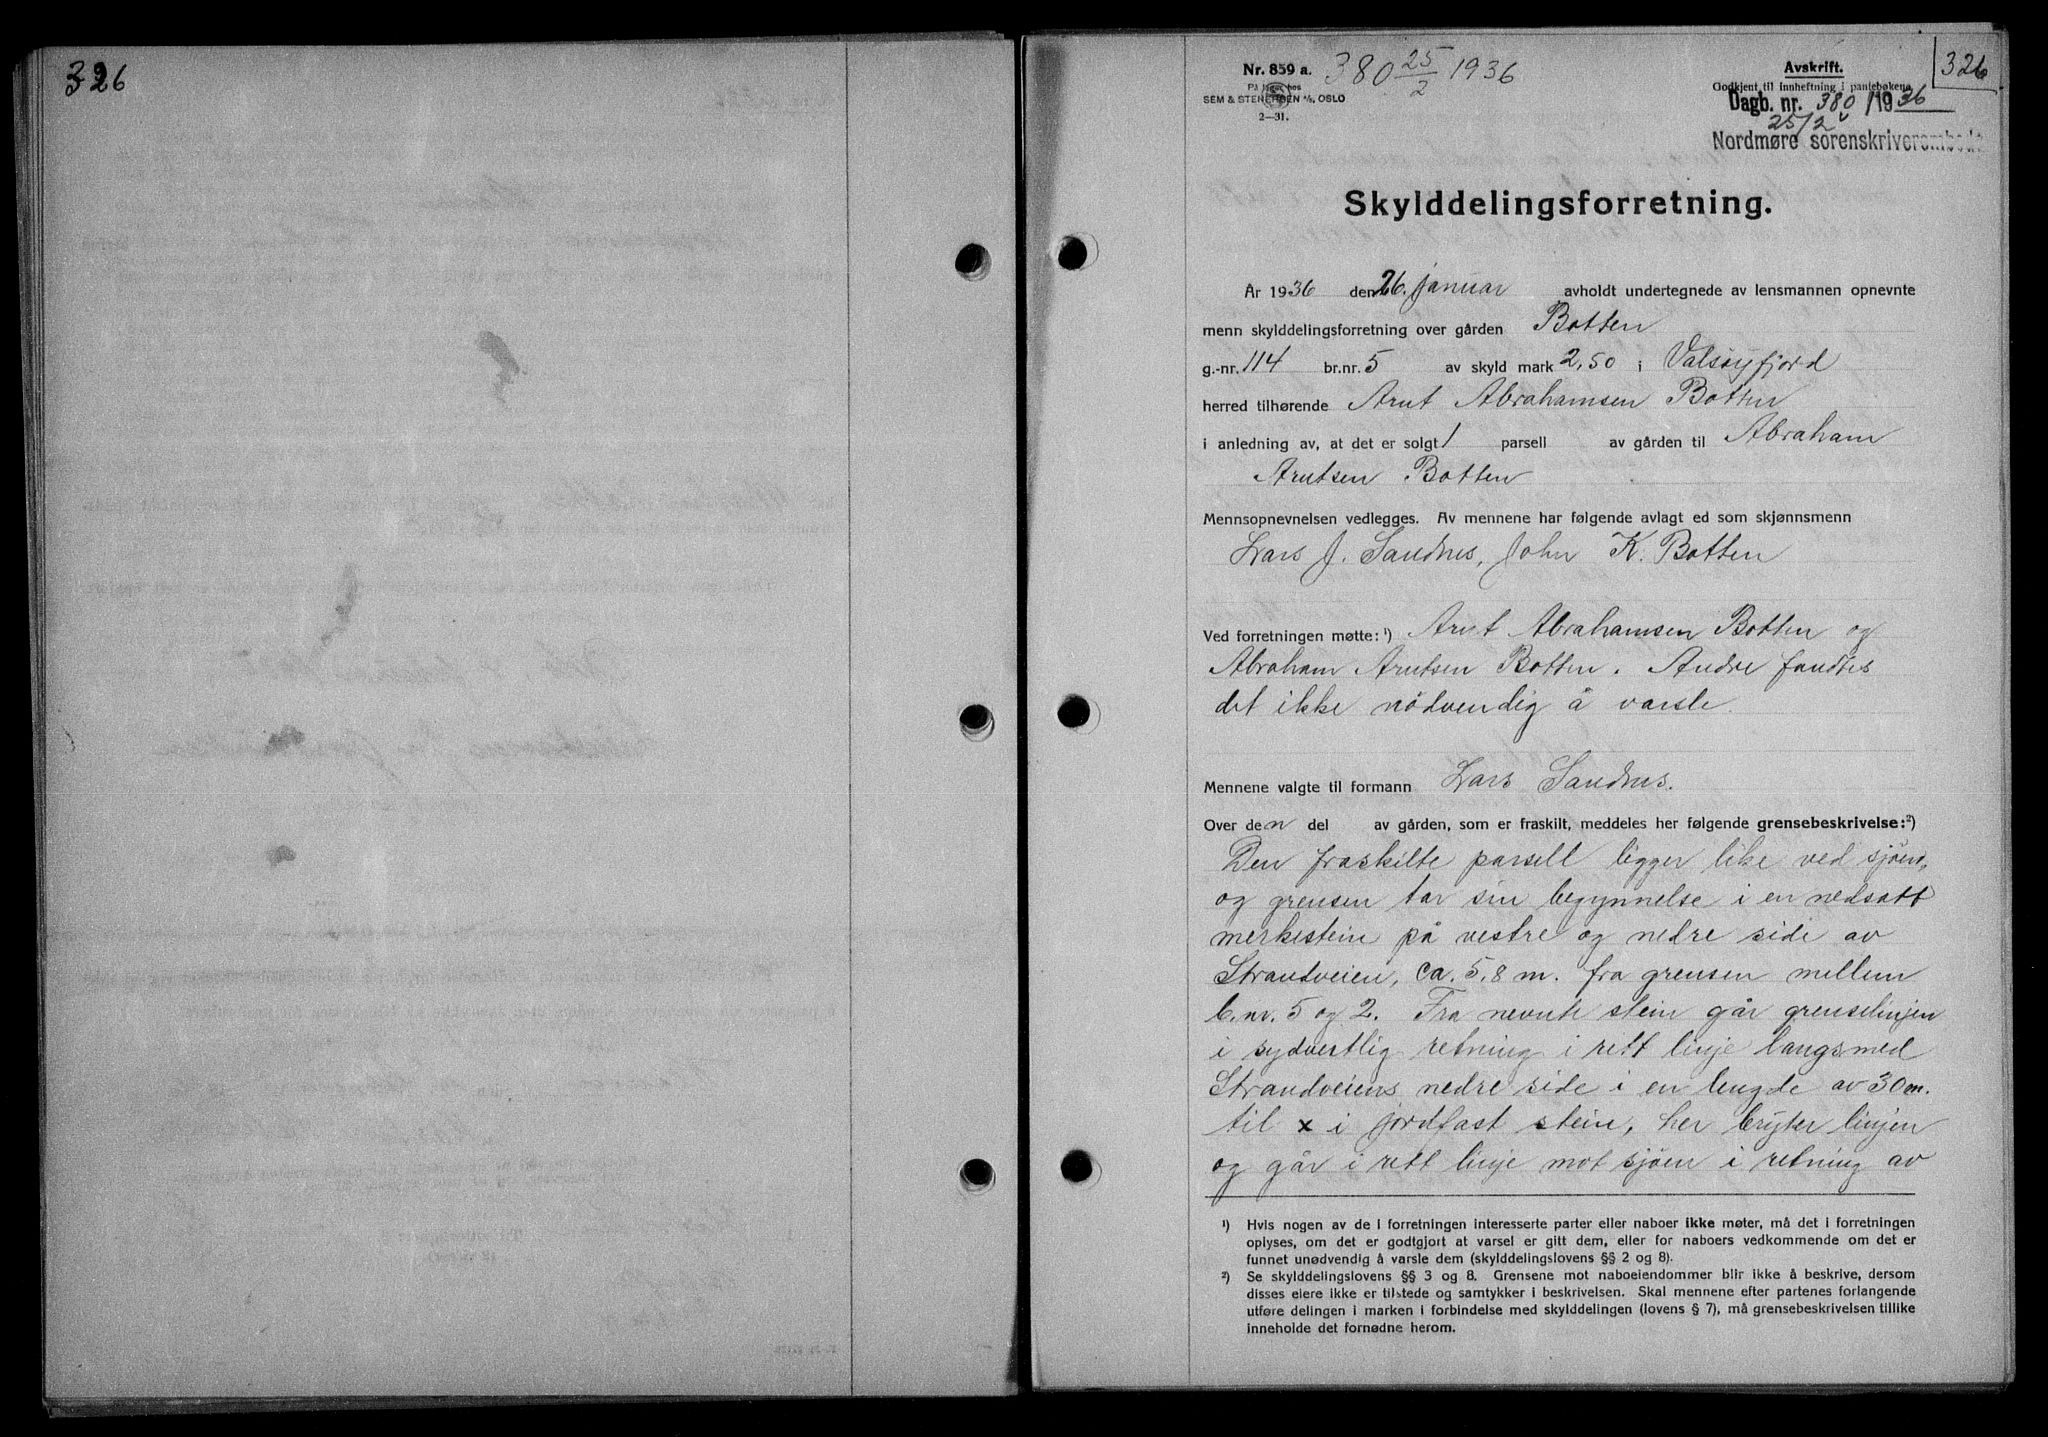 326
Nr. 859 a.
På lager hos
SEM & STENERSEN A/S, OSLO
2—31.
380 25/2 1936
Avskrift.
326
Godkjent til innheftning i pantebøkene
Dagb. nr. 380 / 1936
25/2
Nordmøre sorenskriverembede
Skylddelingsforretning.
År 1936 den 26. januar avholdt undertegnede av lensmannen opnevnte
menn skylddelingsforretning over gården Botten
g.-nr. 114 br.nr. 5 av skyld mark 2,50 i Valsøyfjord
herred tilhørende Arnt Abrahamsen Botten
i anledning av, at det er solgt 1 parsell av gården til Abraham
Arntsen Botten
Mennsopnevnelsen vedlegges. Av mennene har følgende avlagt ed som skjønnsmenn
Lars J. Sandnes, John K. Botten
Ved forretningen møtte: ¹) Arnt Abrahamsen Botten og
Abraham Arntsen Botten. Andre fandtes
det ikke nödvendig å varsle.
Mennene valgte til formann Lars Sandnes.
Over den del av gården, som er fraskilt, meddeles her følgende grensebeskrivelse: ²)
Den fraskilte parsell ligger like ved sjöen,
og grensen tar sin begynnelse i en nedsatt
merkestein på vestre og nedre side av
Strandveien, ca. 5,8 m. fra grensen mellem
b.nr. 5 og 2. Fra nevnte stein går grenselinjen
i sydvestlig retning i rett linje langsmed
Strandveiens nedre side i en lengde av 30 m.
til x i jordfast stein, her bryter linjen
og går i rett linje mot sjöen i retning av
¹) Hvis nogen av de i forretningen interesserte parter eller naboer ikke møter, må det i forretningen
oplyses, om det er godtgjort at varsel er gitt dem, eller for naboers vedkommende om det er
funnet unødvendig å varsle dem (skylddelingslovens §§ 2 og 8).
²) Se skylddelingslovens §§ 3 og 8. Grensene mot naboeiendommer blir ikke å beskrive, dersom
disses eiere ikke er tilstede og samtykker i beskrivelsen. Skal mennene efter partenes forlangende
utføre delingen i marken i forbindelse med skylddelingen (lovens § 7), må grensebeskrivelsen tillike
inneholde det fornødne herom.